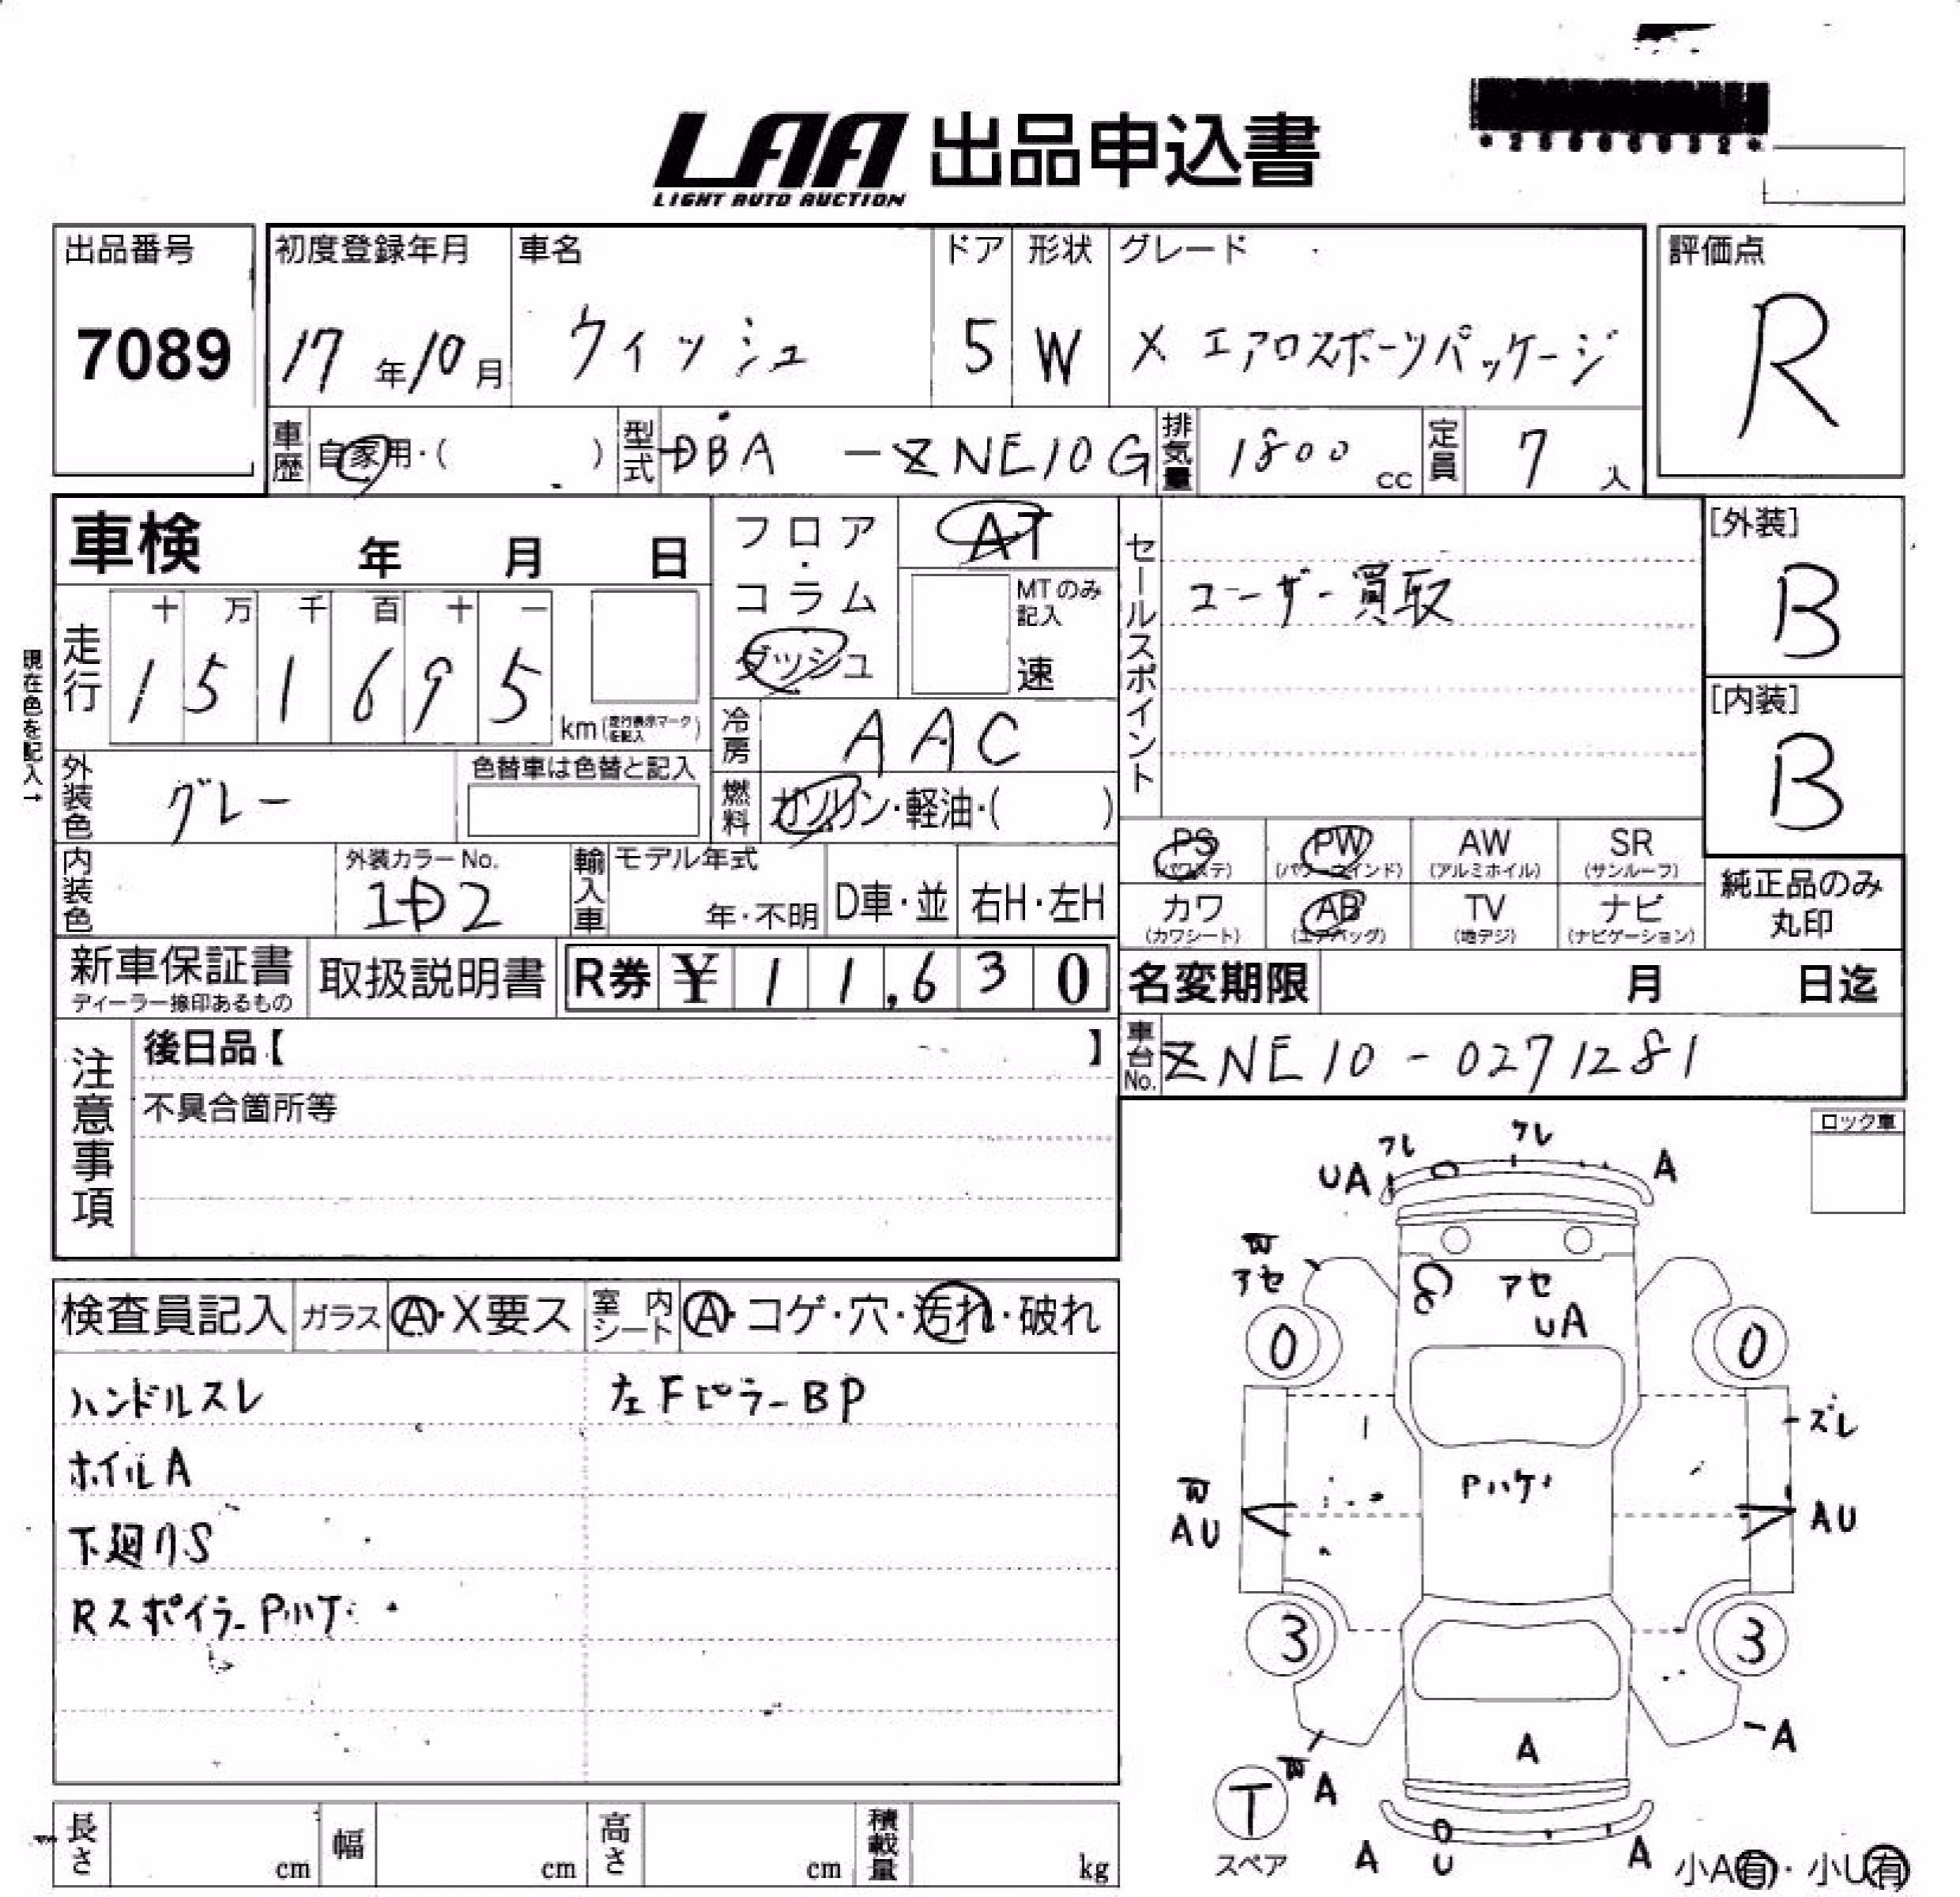 LAA 出品申込書
LIGHT AUTO AUCTION
出品番号
7089
初度登録年月
17年10月
車名
ウィッシュ
ドア
5
形状
W
グレード
X エアロスポーツパッケージ
評価点
R
車歴 自家用・( )
型式 DBA-ZNE10G
排気量 1800cc
定員 7人
車検 年 月 日
現在色を記入→
走行
十 万 千 百 十 一
1 5 1 6 9 5
km(走行表示マークを記入)
フロア・コラム
ダッシュ
AT
MTのみ記入
速
冷房 AAC
燃料 ガソリン・軽油・( )
外装色 グレー
色替車は色替と記入
内装色
外装カラーNo.
1D2
輸入車
モデル年式
年・不明
D車・並
右H・左H
セールスポイント
ユーザー買取
[外装]
B
[内装]
B
PS (パワステ)
PW (パワーウインド)
AW (アルミホイル)
SR (サンルーフ)
カワ (カワシート)
AB (エアバッグ)
TV (地デジ)
ナビ (ナビゲーション)
純正品のみ
丸印
新車保証書
ディーラー捺印あるもの
取扱説明書
R券 ¥11,630
名変期限 月 日迄
車台No. ZNE10-0271281
注意事項
後日品【 】
不具合箇所等
ロック車
検査員記入
ガラス A・X要ス
室内シート A・コゲ・穴・汚れ・破れ
ハンドルスレ
左FピラーBP
ホイルA
下廻りS
RスポイラーPハゲ
ワレ
ワレ
UA
A
W
アセ
アセ
UA
0
0
ズレ
Pハゲ
W
AU
AU
3
3
A
A
W
A
T
スペア
A
U
A
小A有・小U有
長さ cm
幅 cm
高さ cm
積載量 kg